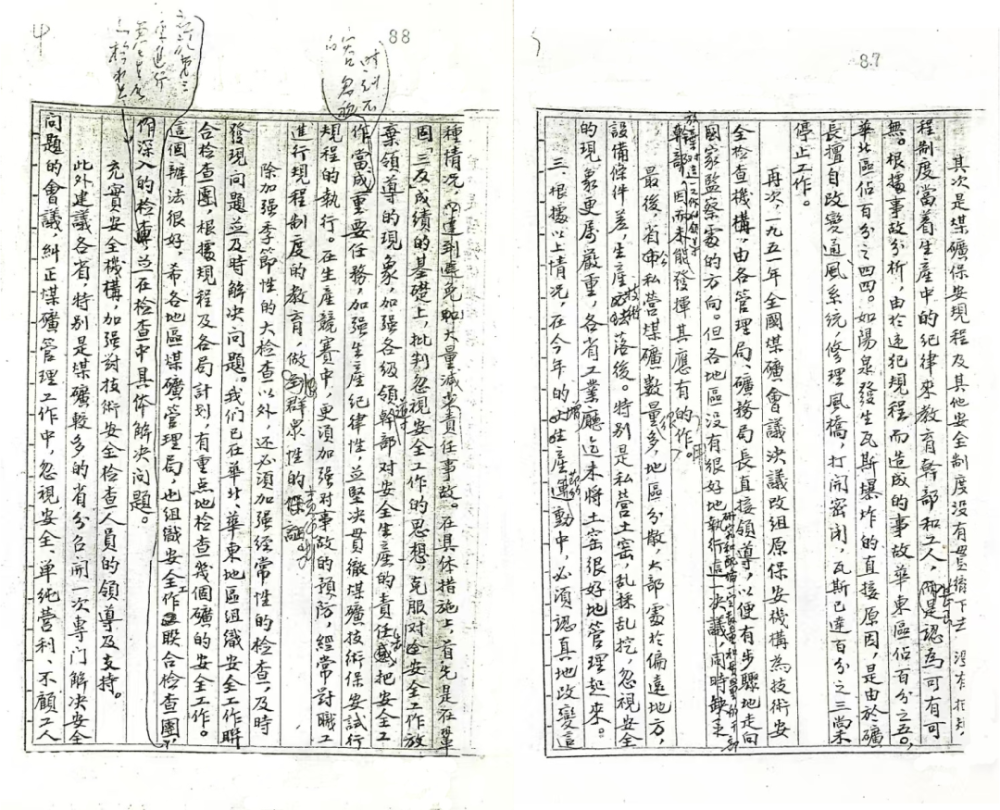 87
其次是煤礦保安規程及其他安全制度没有貫徹下去，没有把規
程制度當着生產中的紀律來教育幹部和工人，而是認為可有可
無。根據事故分析，由於違犯規程，而造成的事故華東區佔百分之五〇，
華北區佔百分之四四。如陽泉發生瓦斯爆炸的直接原因，是由於礦
長擅自改變通風系統修理風橋，打開密閉，瓦斯已達百分之三尚未
停止工作。
再次，一九五一年全國煤礦會議決議改組原保安機構為技術安
全檢查機構，由各管理局、礦務局長直接領導，以便有步驟地走向
國家監察處的方向。但各地區没有很好地執行這一決議，同時缺乏
幹部，因而未能發揮其應有的作用。
最後，省、市私營煤礦數量多，地區分散，大部處於偏遠地方，
設備條件差，生產技術落後。特别是私營土窑，乱採乱挖，忽視安全
的現象更為嚴重，各省工業廳迄未將土窑很好地管理起來。
三、根據以上情况，在今年的增產運動中，必須認真地改變這
88
種情况，達到避免和大量減少責任事故。在具体措施上，首先是在鞏
固「三反」成績的基礎上，批判忽視安全工作的思想，克服对安全工作放
棄領導的現象，如强各級領導幹部对安全生產的責任感，把安全工
作當成重要任務，加强生產紀律性，並堅决貫徹煤礦技術保安試行
規程的執行。在生產競賽中，更須加强对事故的預防，經常對職工
進行規程制度的教育，做到群衆性的保證
除加强季節性的大檢查以外，还必須加强經常性的檢查，及時
發現问題並及時解决问題。我們已在華北、華東地區組織安全工作聯
合檢查團，根據規程及各局計划，有重点地檢查幾個礦的安全工作。
這個辦法很好，希各地區煤礦管理局，也組織安全工作联合檢查團，
作深入的檢查，並在檢查中具体解决问題。
充實安全機構，加强對技術安全檢查人員的領導及支持。
此外建議各省，特别是煤礦較多的省份召開一次專门解决安全
问題的會議，糾正煤礦管理工作中，忽視安全、單純營利、不顧工人